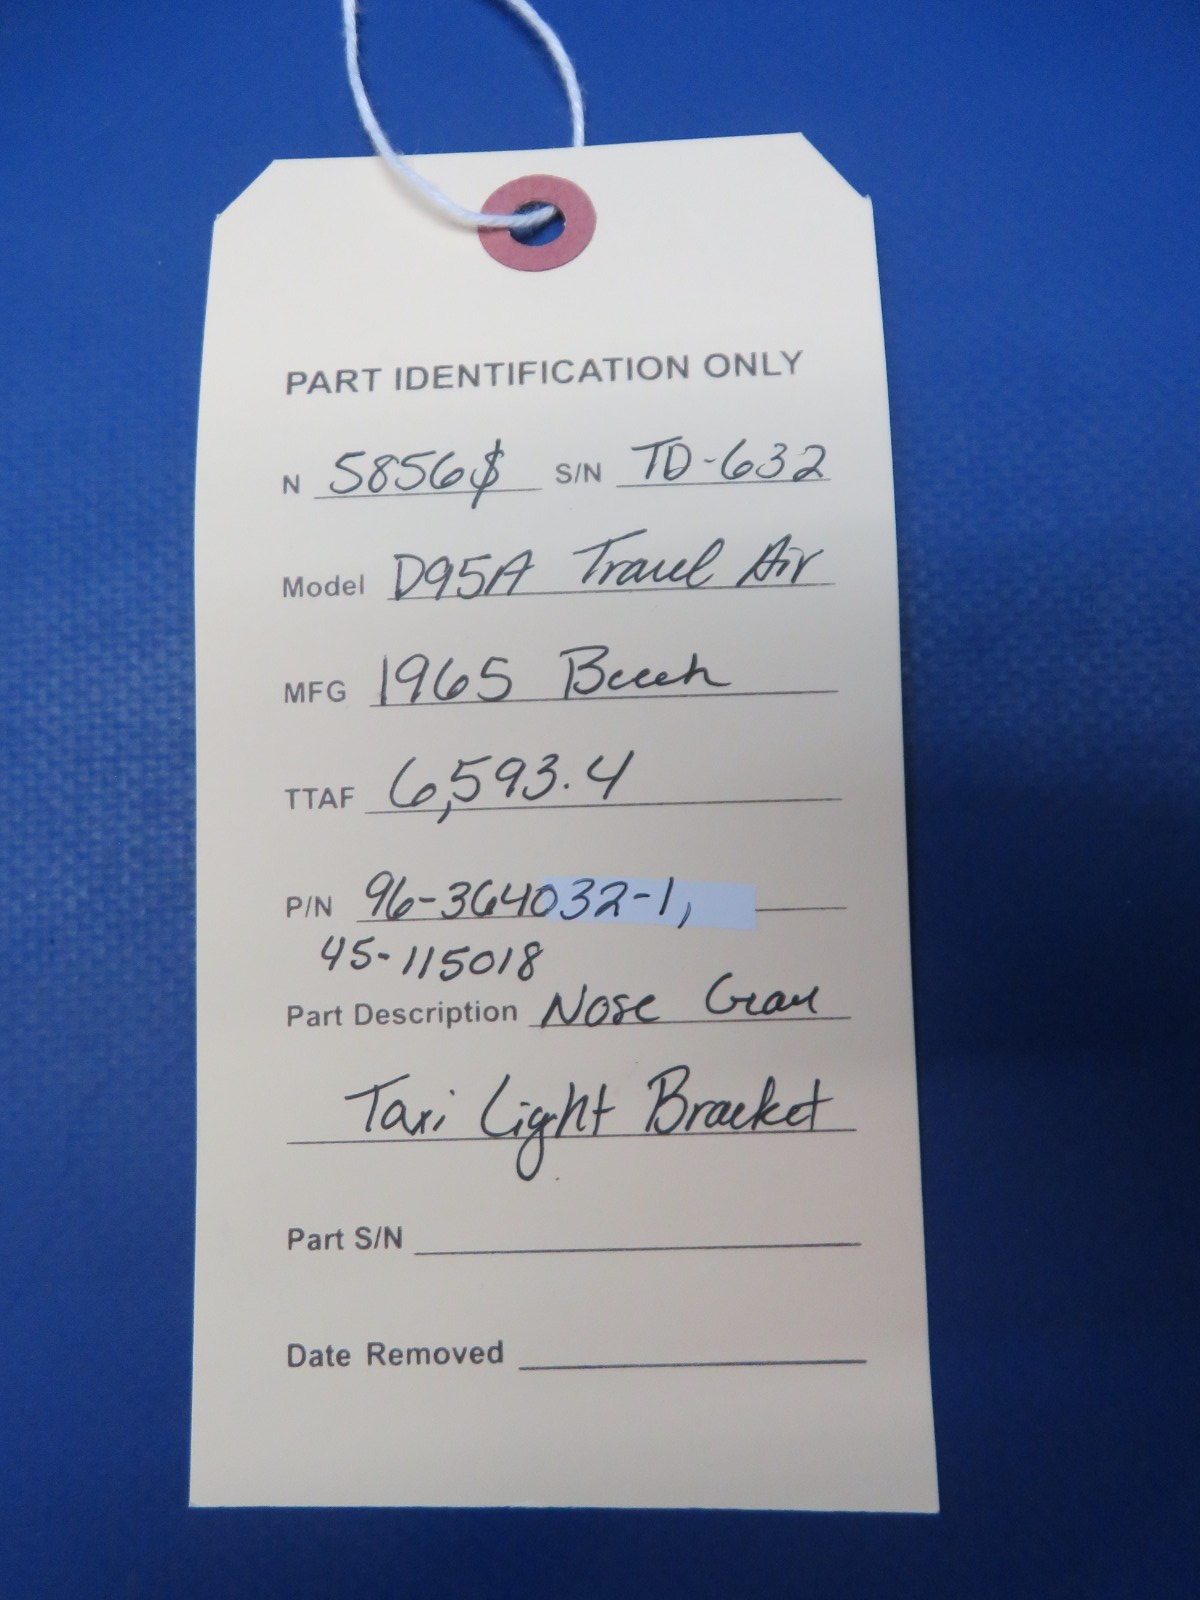 PART IDENTIFICATION ONLY
N 5856S S/N TD-632
Model D95A Travel Air
MFG 1965 Beech
TTAF 6,593.4
P/N 96-364032-1,
45-115018
Part Description Nose Gear
Taxi Light Bracket
Part S/N
Date Removed